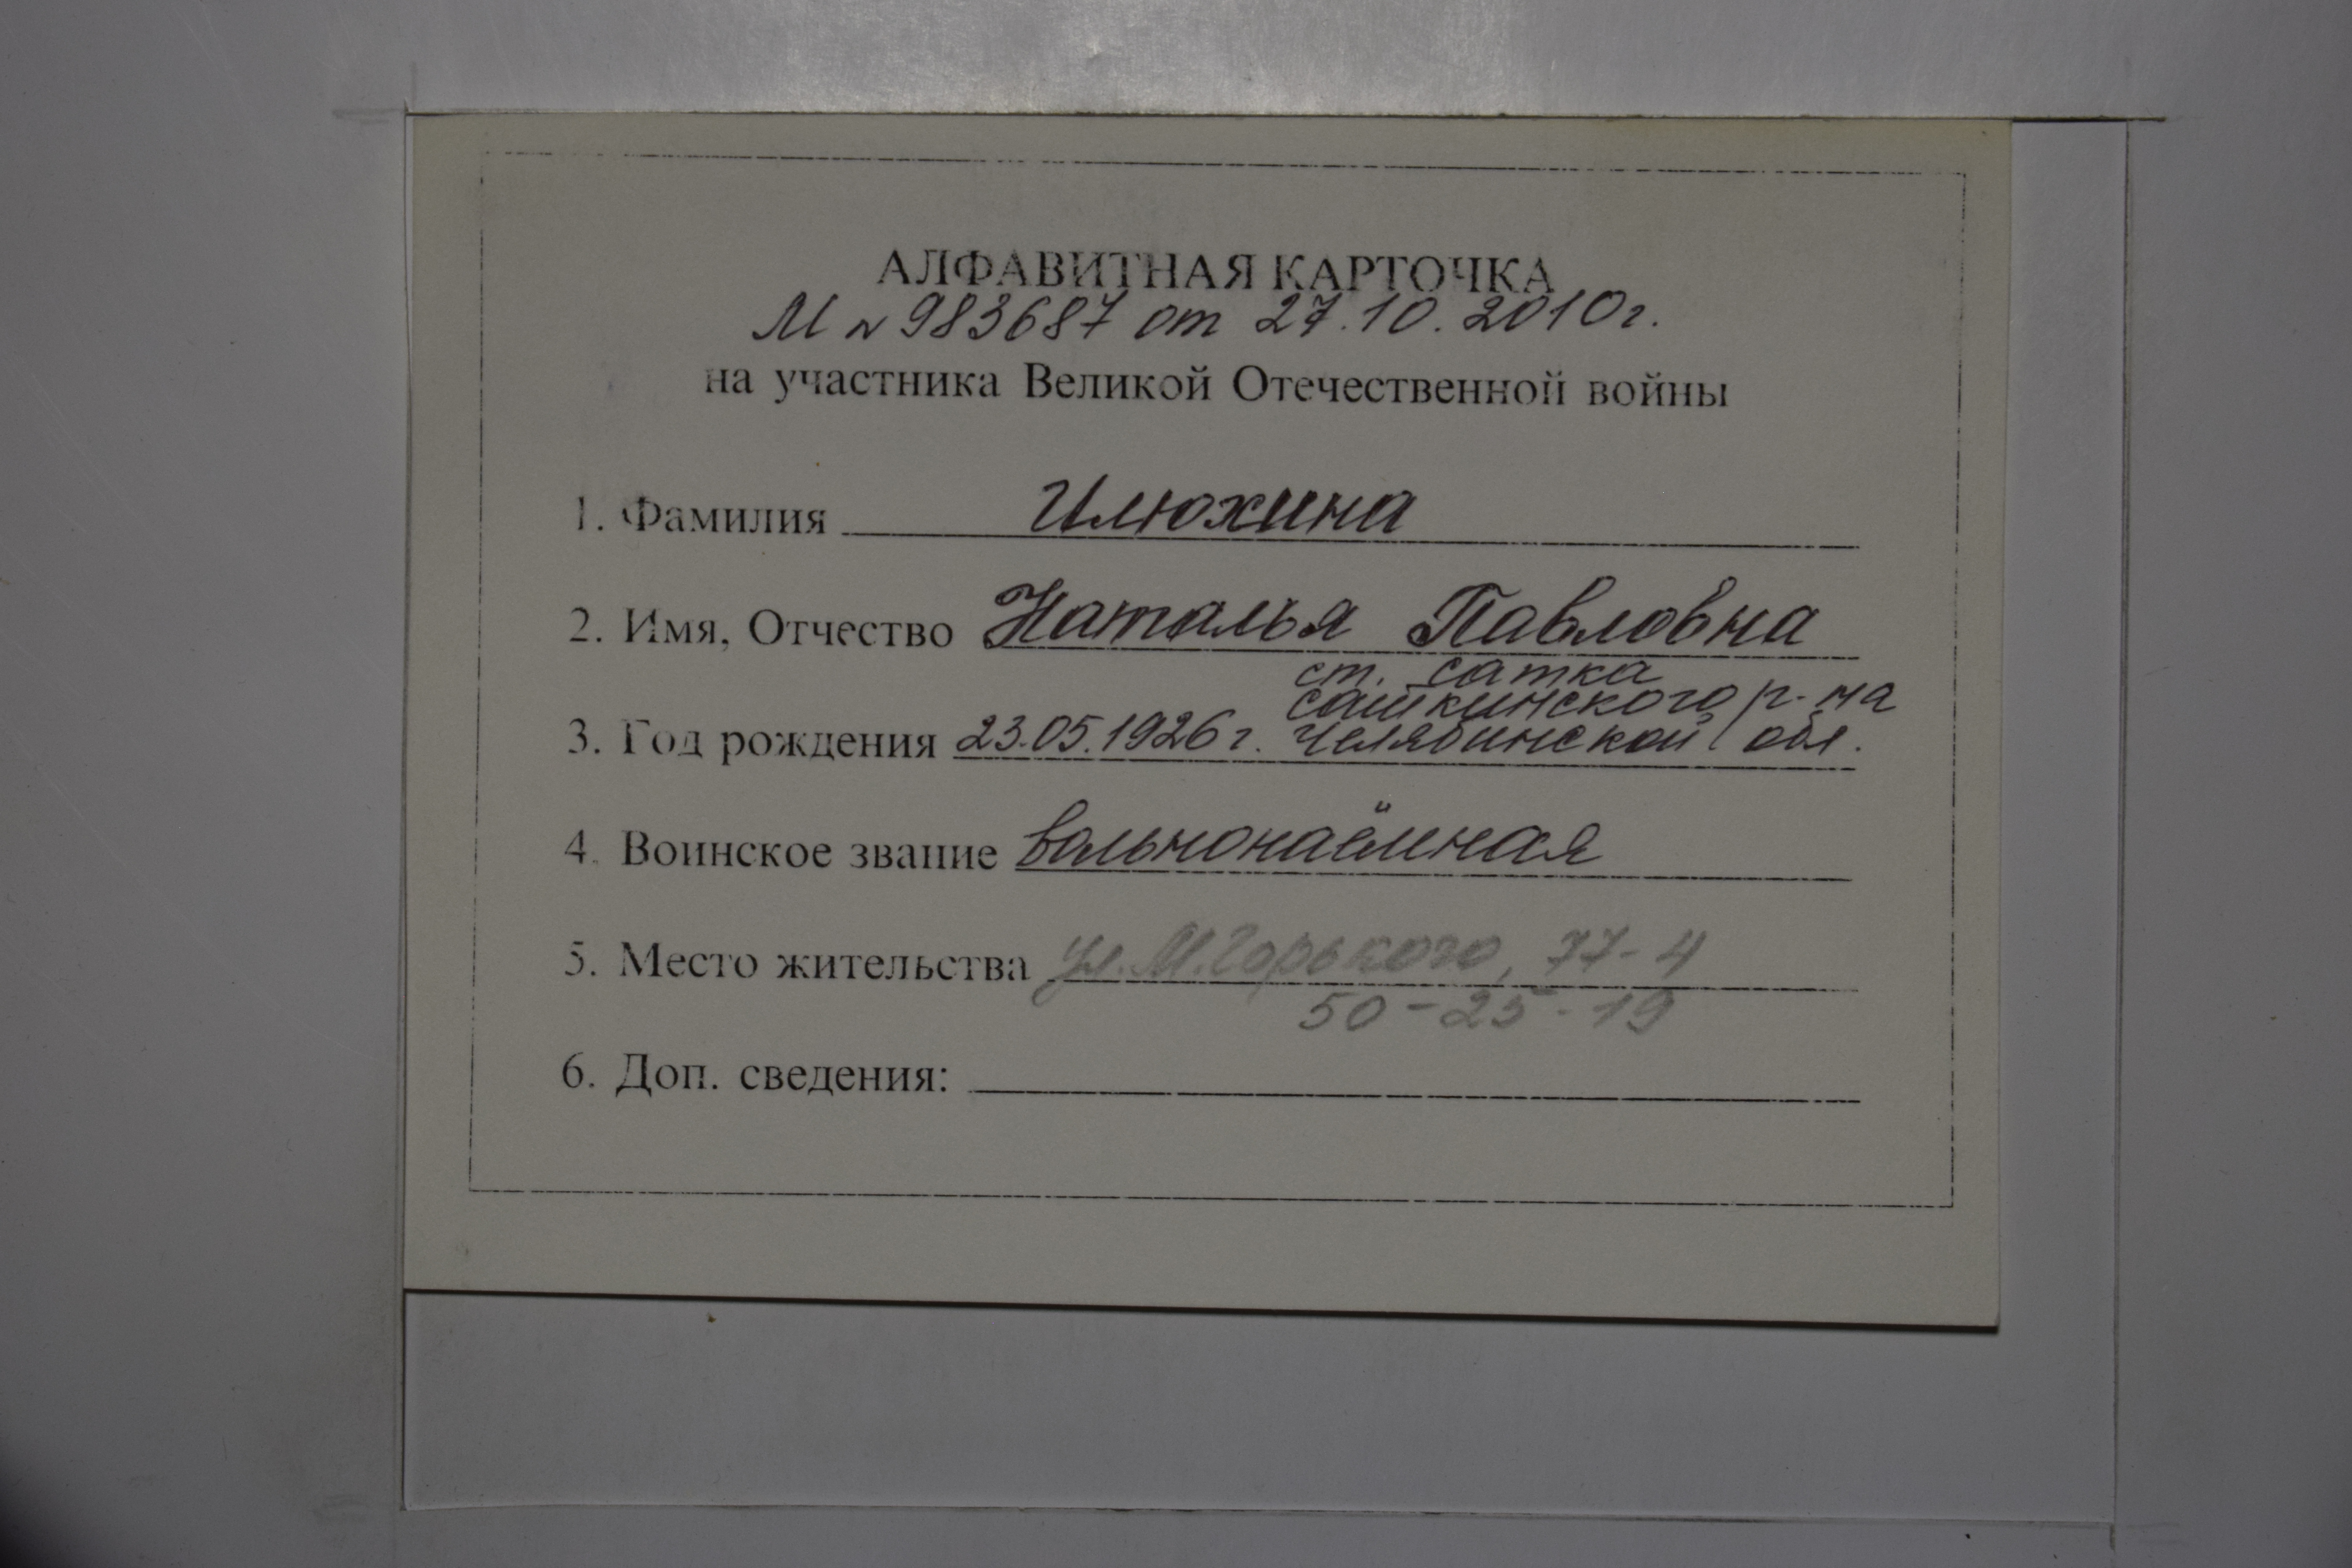 АЛФАВИТНАЯ КАРТОЧКА
М № 983687 от 27.10.2010г.
на участника Великой Отечественной войны
1. Фамилия Илюхина
2. Имя, Отчество Наталья Павловна
ст. Сатка
Саткинского р-на
3. Год рождения 23.05.1926г. Челябинской обл.
4. Воинское звание вольнонаёмная
5. Место жительства ул. М. Горького, 77-4
50-25-19
6. Доп. сведения: